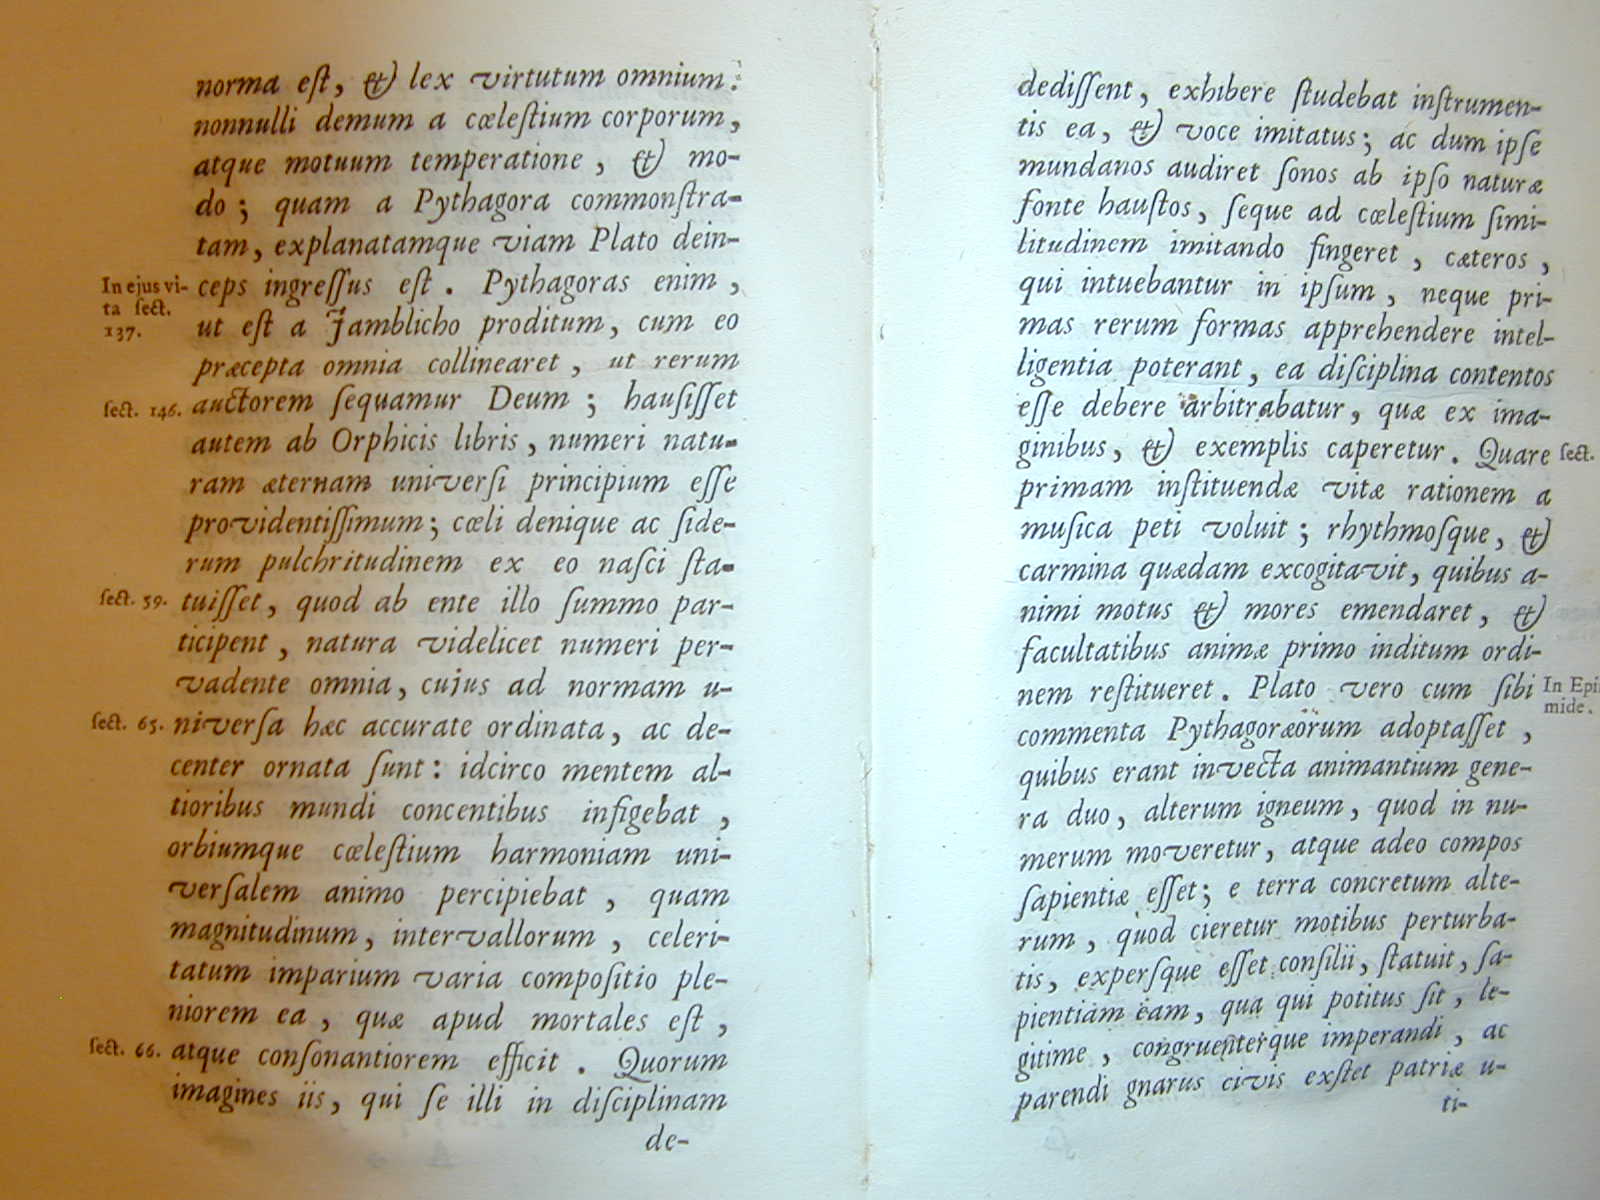 norma eſt, & lex virtutum omnium:
nonnulli demum a cœleſtium corporum,
atque motuum temperatione, & mo-
do; quam a Pythagora commonſtra-
tam, explanatamque viam Plato dein-
In ejus vi-
ta ſect.
137.
ceps ingreſſus eſt. Pythagoras enim,
ut eſt a Jamblicho proditum, cum eo
præcepta omnia collinearet, ut rerum
ſect. 146.
auctorem ſequamur Deum; hauſiſſet
autem ab Orphicis libris, numeri natu-
ram æternam univerſi principium eſſe
providentiſſimum; cœli denique ac ſide-
rum pulchritudinem ex eo naſci ſta-
ſect. 59.
tuiſſet, quod ab ente illo ſummo par-
ticipent, natura videlicet numeri per-
vadente omnia, cujus ad normam u-
ſect. 65.
niverſa hæc accurate ordinata, ac de-
center ornata ſunt: idcirco mentem al-
tioribus mundi concentibus infigebat,
orbiumque cœleſtium harmoniam uni-
verſalem animo percipiebat, quam
magnitudinum, intervallorum, celeri-
tatum imparium varia compoſitio ple-
niorem ea, quæ apud mortales eſt,
ſect. 66.
atque conſonantiorem efficit. Quorum
imagines iis, qui ſe illi in diſciplinam
de-
dediſſent, exhibere ſtudebat inſtrumen-
tis ea, & voce imitatus; ac dum ipſe
mundanos audiret ſonos ab ipſo naturæ
fonte hauſtos, ſeque ad cœleſtium ſimi-
litudinem imitando fingeret, cæteros,
qui intuebantur in ipſum, neque pri-
mas rerum formas apprehendere intel-
ligentia poterant, ea diſciplina contentos
eſſe debere arbitrabatur, quæ ex ima-
ginibus, & exemplis caperetur. Quare
ſect.
primam inſtituendæ vitæ rationem a
muſica peti voluit; rhythmoſque, &
carmina quædam excogitavit, quibus a-
nimi motus & mores emendaret, &
facultatibus animæ primo inditum ordi-
nem reſtitueret. Plato vero cum ſibi
In Epi
mide.
commenta Pythagoræorum adoptaſſet,
quibus erant invecta animantium gene-
ra duo, alterum igneum, quod in nu-
merum moveretur, atque adeo compos
ſapientiæ eſſet; e terra concretum alte-
rum, quod cieretur motibus perturba-
tis, experſque eſſet conſilii, ſtatuit, ſa-
pientiam eam, qua qui potitus ſit, le-
gitime, congruenterque imperandi, ac
parendi gnarus civis exſtet patriæ u-
ti-